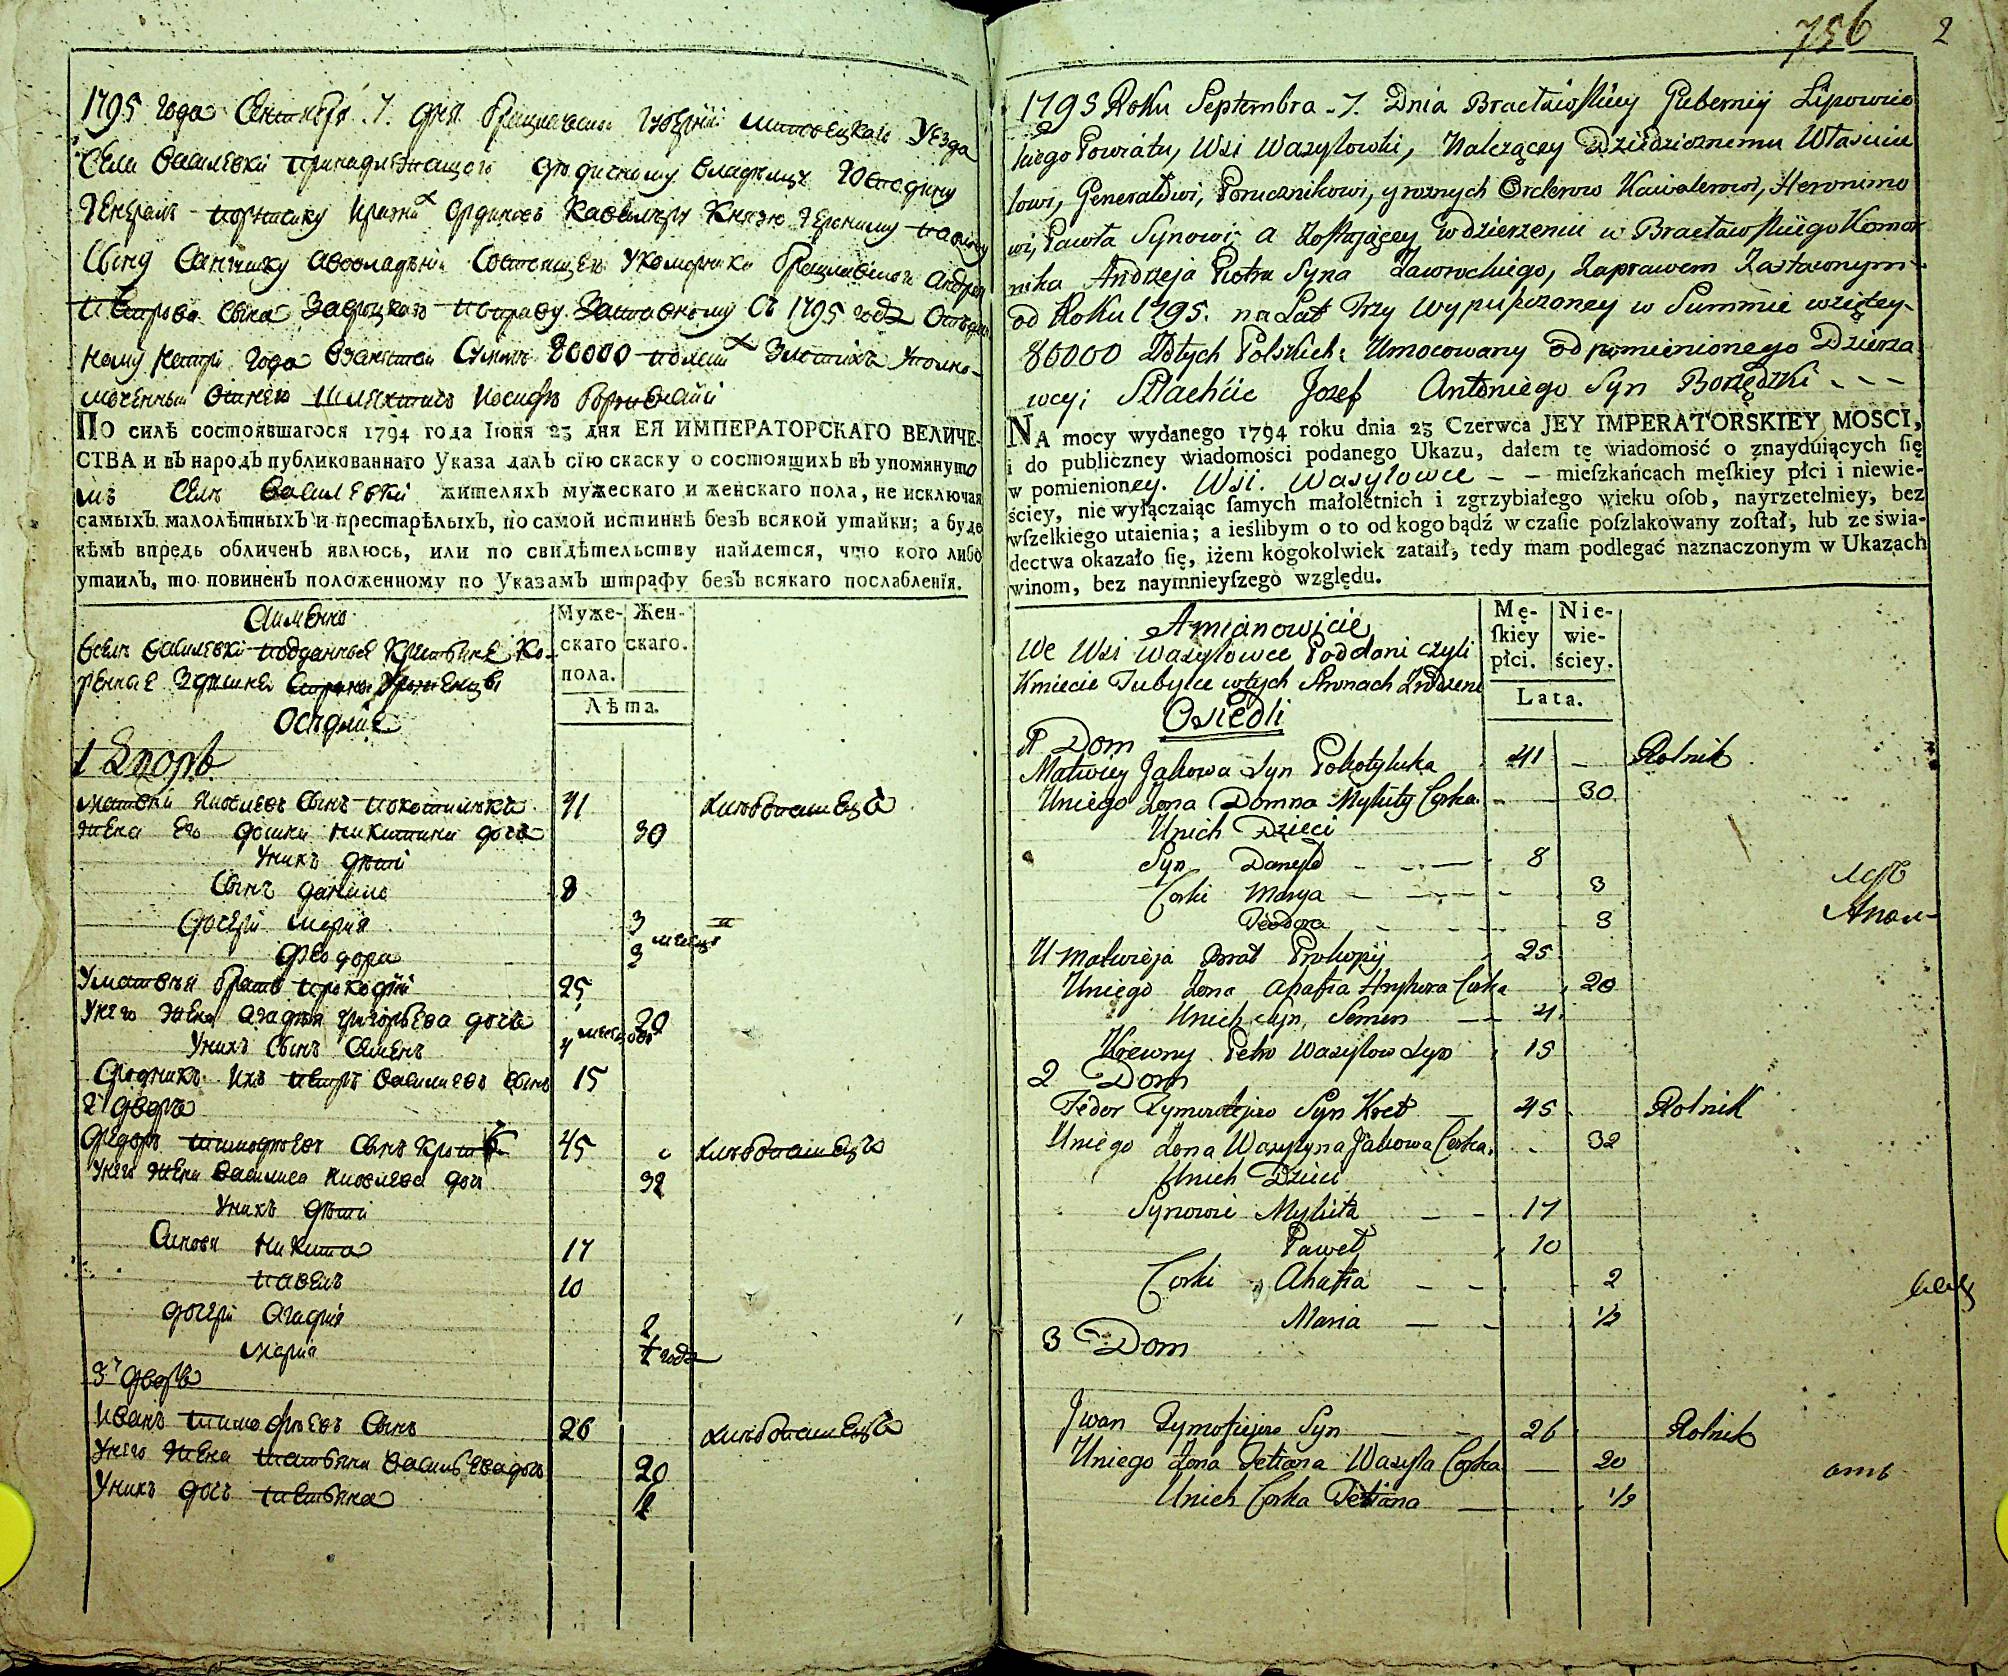 1795 года Сентября 7. дня Брацлавской Губерніи Липовецкаго Уезда
Села Василевки принадлежащого владельцу Господину
Генералъ порутчику Ординовъ Кавалеру Князю Герониму павлову
Сыну Сангушку Брацлавского Андрея
Петрова сына Заворицкаго по праву Заставному съ 1795 года
на три года Сумме 80000 Злотихъ Уполно-
моченный Шляхтичь Иосифъ
По силѣ состоявшагося 1794 года Іюня 23 дня ЕЯ ИМПЕРАТОРСКАГО ВЕЛИЧЕ-
СТВА и въ народъ публикованнаго Указа далъ сію скаску о состоящихъ въ упомянуто
мъ Селе Василевки жителяхъ мужескаго и женскаго пола, не исключая
самыхъ малолѣтныхъ и престарѣлыхъ, по самой истиннѣ безъ всякой утайки; а буде
кѣмъ впредь обличенъ явлюсь, или по свидѣтельству найдется, что кого либо
утаилъ, то повиненъ положенному по Указамъ штрафу безъ всякаго послабленія.
Аименно
Муже- Жен-
скаго скаго.
пола.
Лѣта.
Оседлие
1 Дворъ
Матвей Яковлевъ Сынъ Покотилюкъ 41 хлебопашецъ
Жена Его домна никитина дочь 30
Унихъ дети
Сынъ данило 8
дочери мария 3
Феодора 3 месяца
Уматвея братъ прокофий 25
Унего Жена агафия григорьева дочь 20
Унихъ Сынъ Семенъ 4 месяцовъ
Сродникъ Ихъ петръ василиевъ сынъ 15
2 дворъ
Федоръ тимофеевъ Сынъ Кротъ 45 хлебопашецъ
Унего жена василиса яковлева дочь 32
Унихъ дети
Синови Никита 17
павелъ 10
дочери Агафия 2
мария ½ года
3 дворъ
Иванъ тимофеевъ Сынъ 26 хлебопашецъ
Унего жена татьяна василева дочь 20
Унихъ дочь татьяна ½
756 2
1795 Roku Septembra 7. Dnia Bracławskiey Gubernij Lipowiec
kiego Powiatu, Wsi Wasylowki, Należącey Dziedzicznemu Właścicie
lowi, Generałowi, Porucznikowi, y roznych Orderow Kawalerowi, Heronimo
wi, Pawła Synowi; a zostającey w dzierzeniu u Bracławskiego Komor
nika Andrzeja Piotra Syna Zaworockiego, zaprawem Zastawnym
od Roku 1795. na Lat Trzy wypuszczoney w Summie wziętey
80000 Złotych Polskich: Umocowany od pomienionego Dzierża
wcy; Szlachcic Jozef Antoniego Syn Borzędzki - - -
NA mocy wydanego 1794 roku dnia 23 Czerwca JEY IMPERATORSKIEY MOSCI,
i do publiczney wiadomości podanego Ukazu, dałem tę wiadomość o znayduiących ſię
w pomienioney. Wsi. Wasylowce - - mieſzkańcach męſkiey płci i niewie-
ściey, nie wyłączaiąc ſamych małoletnich i zgrzybiałego wieku oſob, nayrzetelniey, bez
wſzelkiego utaienia; a ieślibym o to od kogo bądź w czaſie poſzlakowany zoſtał, lub ze świa-
dectwa okazało ſię, iżem kogokolwiek zataił, tedy mam podlegać naznaczonym w Ukazach
winom, bez naymnieyſzego względu.
Amianowicie
We Wsi Wasylowce Poddani czyli
Kmiecie Tubylce wtych Stronach Zrodzeni
Osiedli
Mę- Nie-
ſkiey wie-
płci. ściey.
Lata.
1 Dom
Matwiey Jakowa Syn Pokotyluka 41 - Rolnik
Uniego Żona Domna Mykity Corka - - 30
Unich Dzieci
Syn Danyło - - - 8
Corki Marya - - - 3
Teodora - - 3
U Matwieja Brat Prokopij 25
Uniego Żona Ahafia Hryhora Corka 20
Unich Syn Semen - 4
Krewny Petro Wasylow Syn 15
2 Dom
Fedor Tymofiejow Syn Kret - 45 Rolnik
Uniego Żona Wasylyna Jakowa Corka 32
Unich Dzieci
Synowie Mykita - - 17
Paweł 10
Corki Ahafia - - 2
Maria - - ½
3 Dom
Jwan Tymofiejow Syn - - 26 Rolnik
Uniego Żona Tetiana Wasyla Corka - 20
Unich Corka Tetiana - ½